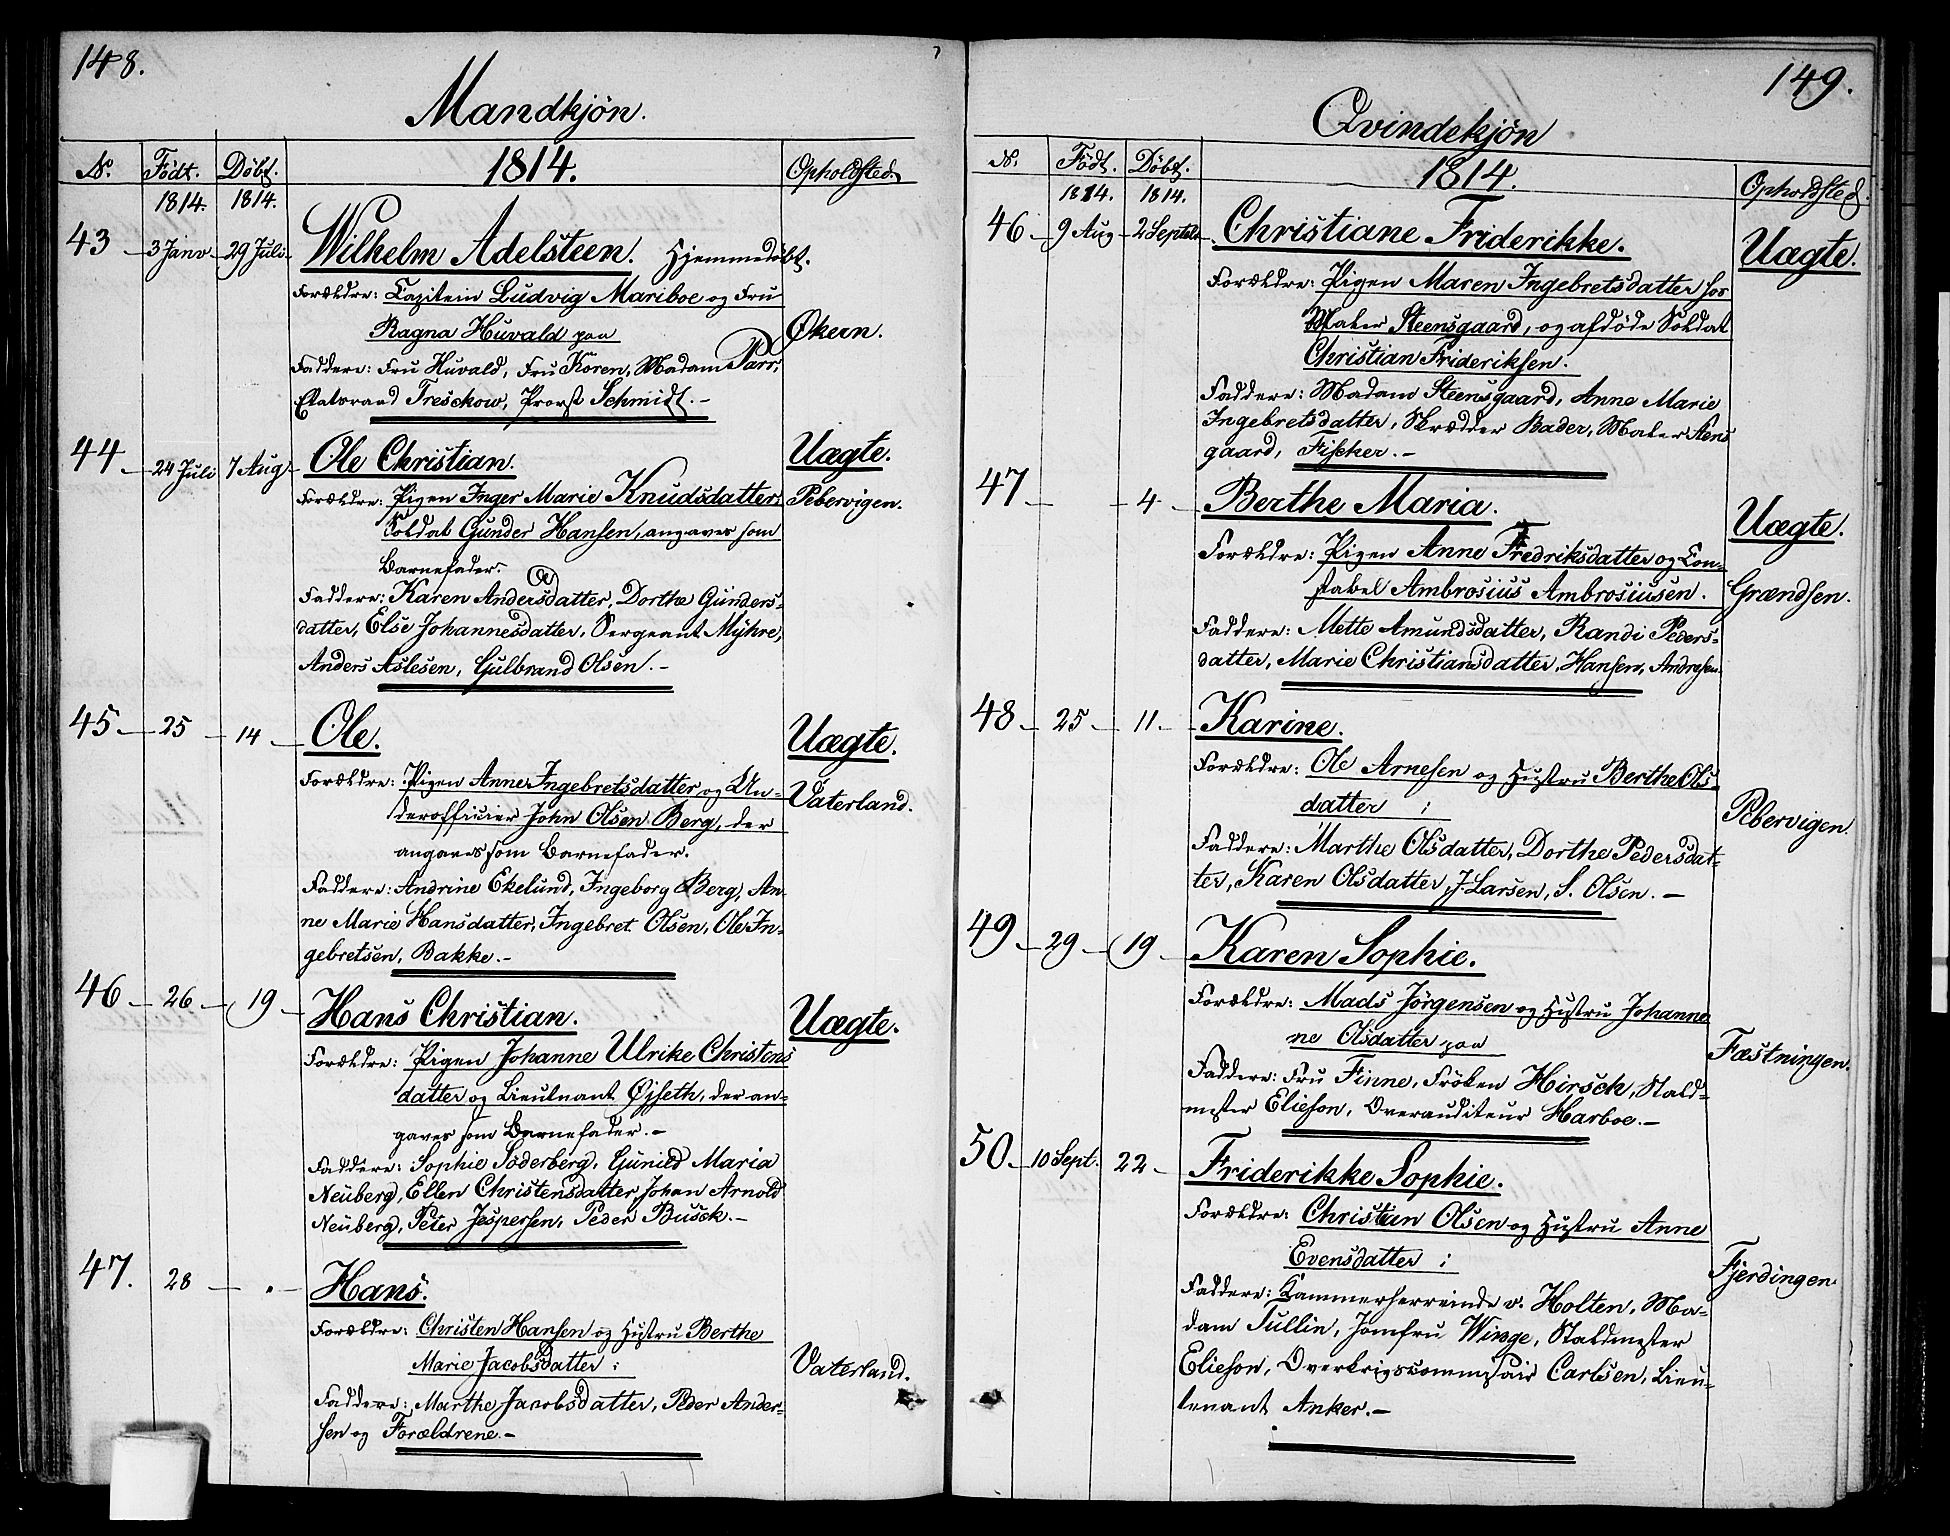 148.
Mandkjön.
No. Födt. Döbt. 1814. Opholdsted.
1814. 1814.
43 3 Janv 29 Juli Wilhelm Adelsteen. Hjemmedöbt.
Forældre: Capitein Ludvig Mariboe og Fru
Ragna Huvald paa Økern.
Faddere: Fru Huvald, Fru Koren, Madam Parr,
Etatsraad Treschow, Provst Schmidt.-
44 24 Juli 7 Aug Ole Christian. Uægte.
Forældre: Pigen Inger Marie Knudsdatter, Pebervigen.
Soldat Gunder Hansen, angaves som
Barnefader.
Faddere: Karen Andersdatter, Dorthe Gunders-
datter, Else Johannesdatter, Sergeant Mÿhre,
Anders Aslesen, Gulbrand Olsen.-
45 25 14 Ole. Uægte.
Forældre: Pigen Anne Ingebretsdatter og Un- Vaterland.
derofficier John Olsen Berg, der
angaves som Barnefader.
Faddere: Andrine Ekelund, Ingeborg Berg, An-
ne Marie Hansdatter, Ingebret Olsen, Ole In-
gebretsen, Bakke.-
46 26 19 Hans Christian. Uægte.
Forældre: Pigen Johanne Ulrike Christens
datter og Lieutnant Øjseth, der an-
gaves som Barnefader.-
Faddere: Sophie Söderberg, Gunild Maria
Neuberg, Ellen Christensdatter, Johan Arnold
Neuberg, Peter Jespersen, Peder Busch.-
47. 28 Hans.
Forældre: Christen Hansen og Hustru Berthe
Marie Jacobsdatter: Vaterland.
Faddere: Marthe Jacobsdatter, Peder Ander-
sen og Forældrene.-
149.
Qvindekjön
No. Födt. Döbt. 1814. Opholdsted.
1814. 1814.
46 9 Aug 2 Septbr Christiane Friderikke. Uægte.
Forældre: Pigen Maren Ingebretsdatter hos
Maler Steensgaard, og afdöde Soldat
Christian Frideriksen.
Faddere: Madam Steensgaard, Anne Marie
Ingebretsdatter, Skrædder Bader, Maler Stens
gaard, Fischer.-
47 4 Berthe Maria. Uægte.
Forældre: Pigen Anne Fredriksdatter og Con-
stabel Ambrosius Ambrosiusen. Grændsen.
Faddere: Mette Amundsdatter, Randi Peders-
datter, Marie Christiansdatter, Hansen, Andresen
48 25 11 Karine.
Forældre: Ole Arnesen og Hustru Berthe Ols-
datter: Pebervigen.
Faddere: Marthe Olsdatter, Dorthe Pedersdat-
ter, Karen Olsdatter, J. Larsen, S. Olsen.-
49 29 19 Karen Sophie.
Forældre: Mads Jörgensen og Hustru Johanne
ne Olsdatter paa Fæstningen.
Faddere: Fru Finne, Fröken Hirsch, Stald-
mester Elieson, Overauditeur Harboe.-
50 10 Sept. 22 Friderikke Sophie.
Forældre: Christian Olsen og Hustru Anne
Evensdatter: Fjerdingen
Faddere: Kammerherreinde v. Holten, Ma-
dam Tullin, Jomfru Winge, Staldmester
Elieson, Overkrigscommisair Carlsen, Lieu-
tenant Anker.-